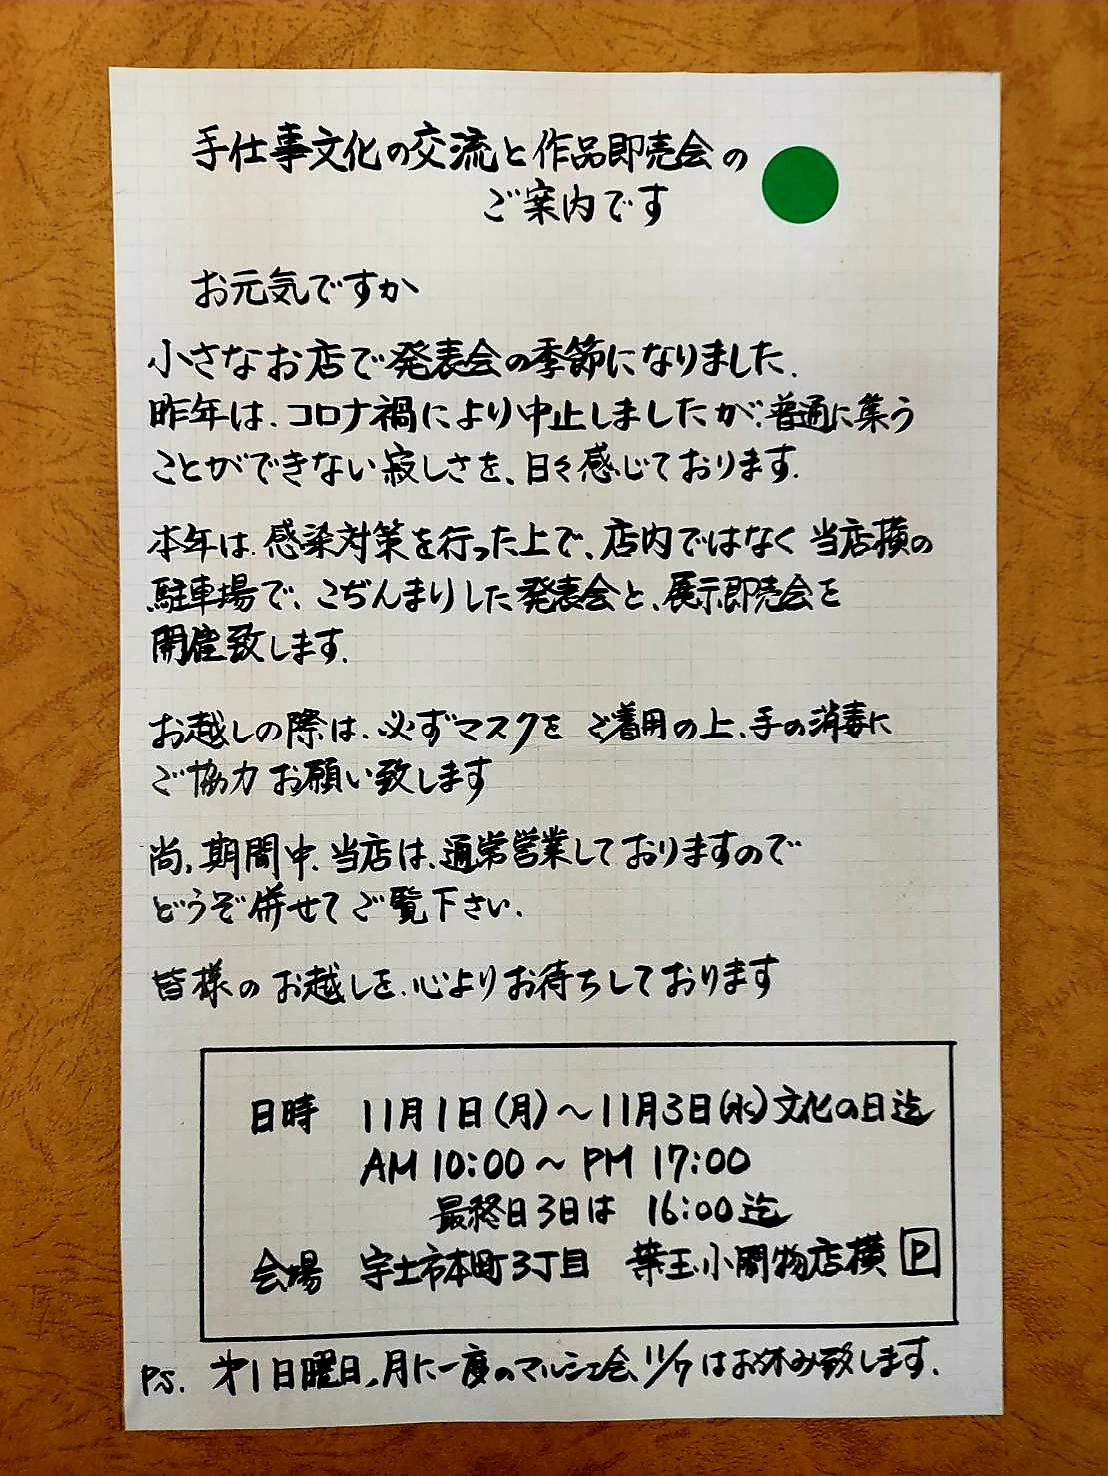 手仕事文化の交流と作品即売会の
ご案内です
お元気ですか
小さなお店で発表会の季節になりました.
昨年は、コロナ禍により中止しましたが、普通に集う
ことができない寂しさを、日々感じております.
本年は、感染対策を行った上で、店内ではなく当店横の
駐車場で、こぢんまりした発表会と、展示即売会を
開催致します.
お越しの際は、必ずマスクを ご着用の上、手の消毒に
ご協力お願い致します
尚,期間中、当店は、通常営業しておりますので
どうぞ併せてご覧下さい.
皆様のお越しを、心よりお待ちしております
日時 11月1日(月)〜11月3日(水)文化の日迄
AM 10:00 〜 PM 17:00
最終日3日は 16:00迄
会場 宇土市本町3丁目 葉玉小間物店横 P
P.S. 才1日曜日、月に一度のマルシェ会、11/7はお休み致します.